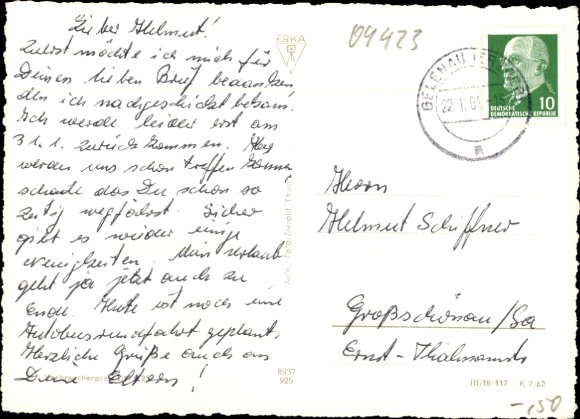 Lieber Helmut!
Zuerst möchte ich mich für
Deinen lieben Brief bedanken
den ich nachgeschickt bekam.
Ich werde leider erst am
31.1. zurück kommen.
werden uns schon treffen können
schade das Du schon so
zeitig wegfährst. Sicher
gibt es wieder einige
Neuigkeiten. Mein Urlaub
geht ja jetzt auch zu
Ende. Heute ist noch eine
Autobusrundfahrt geplant.
Herzliche Grüße auch an
Deine Eltern!
ERKA
04423
GELENAU (ERZGEB)
22.1.6
10
DEUTSCHE
DEMOKRATISCHE REPUBLIK
Herrn
Helmut Schiffner
Großschönau/Sa
Ernst-Thälmannstr
Aufn. Foto Zinsold, Thum
8937
925
III/18-117 K 7/62
-,50